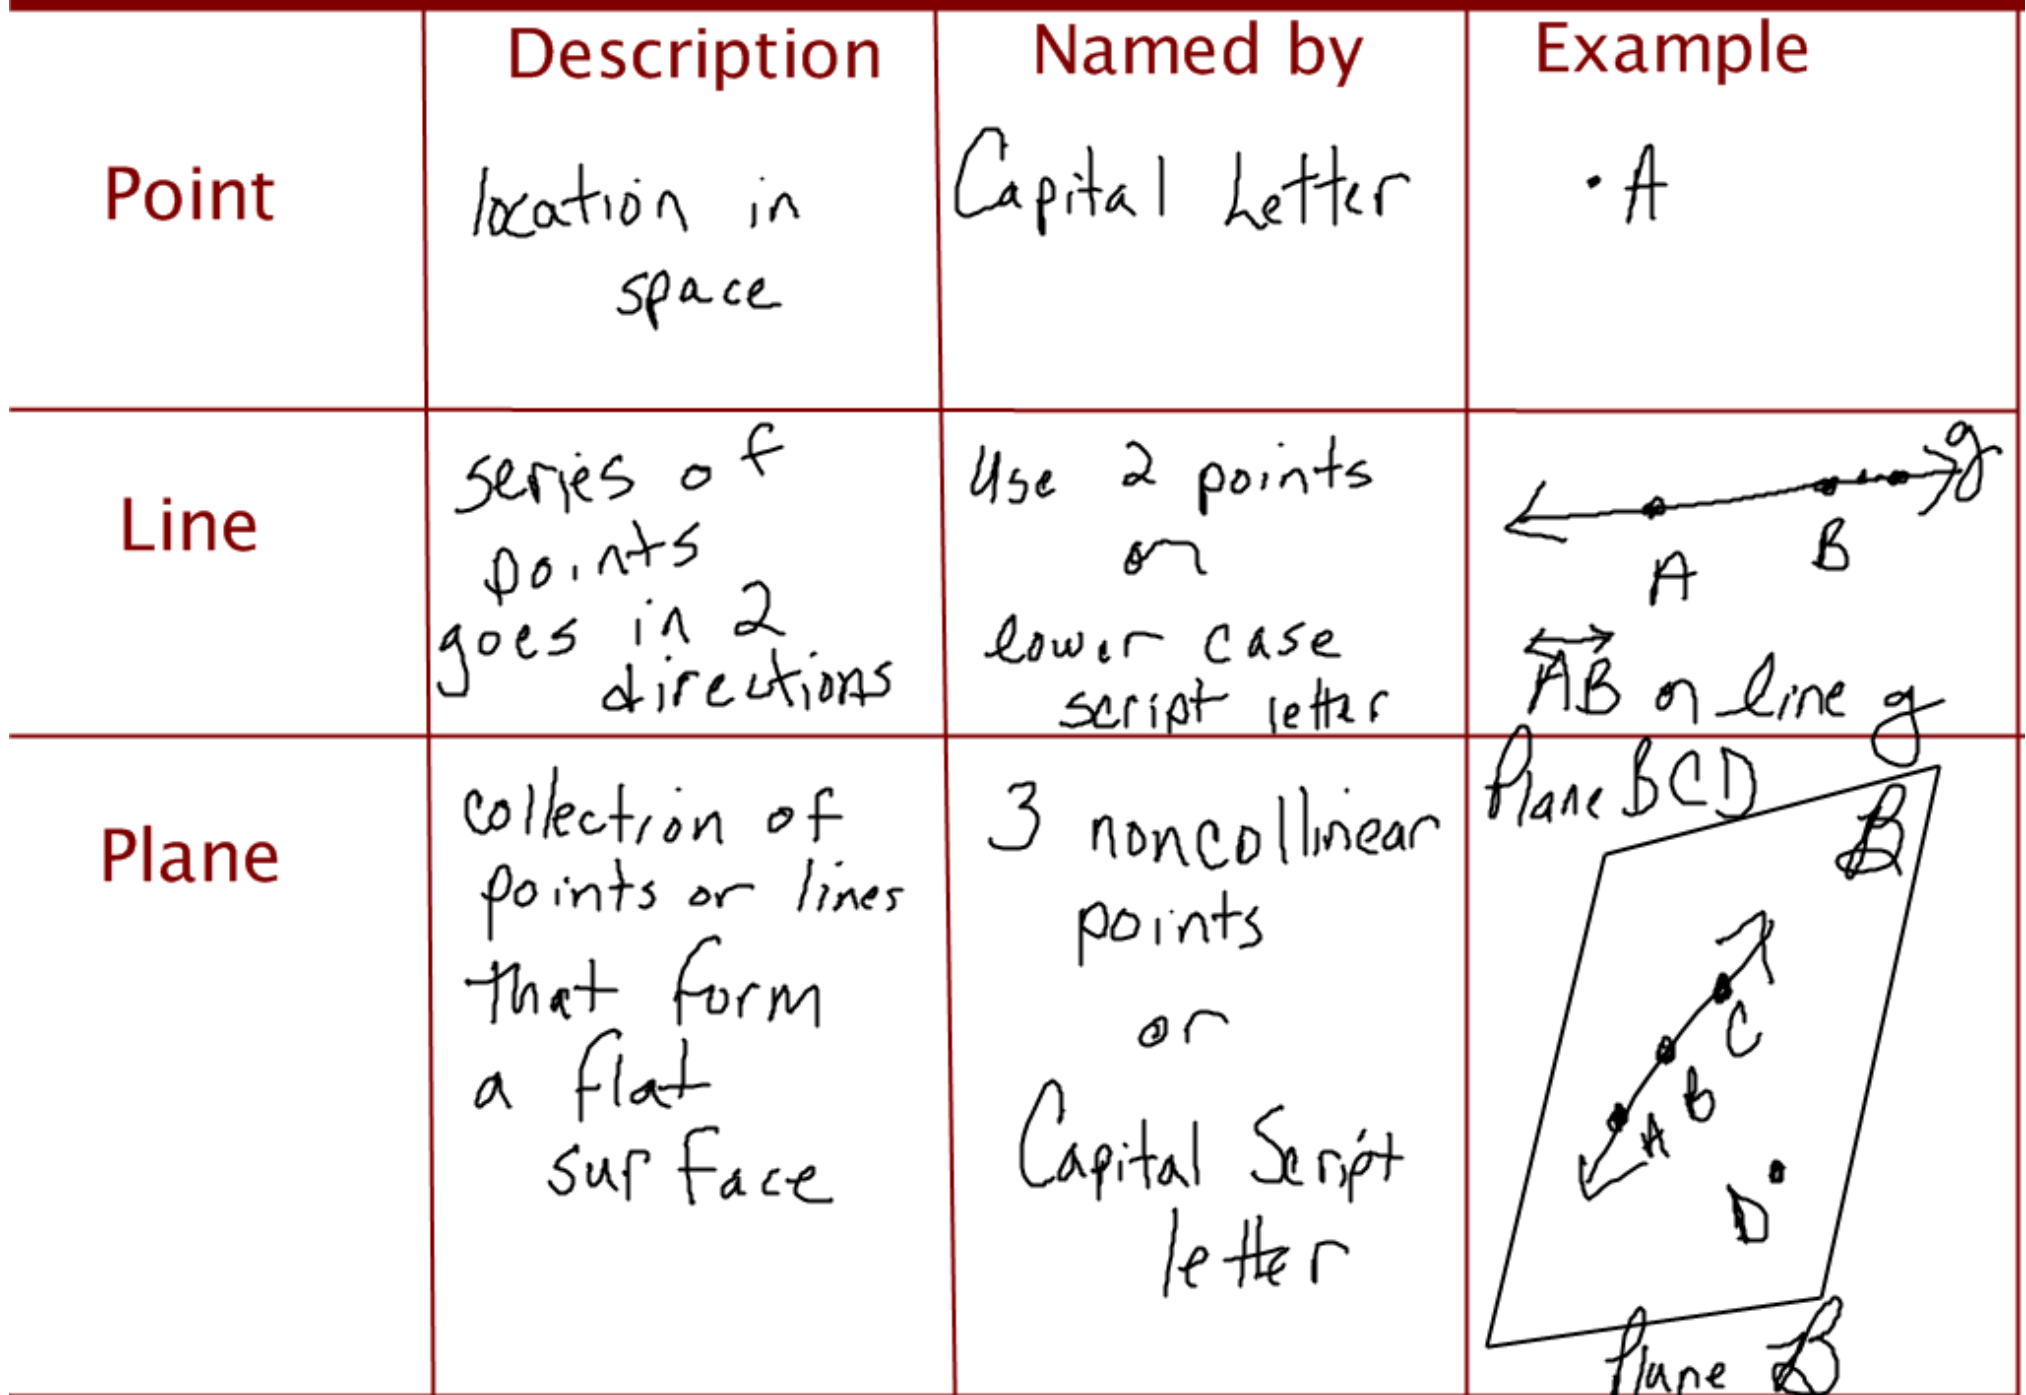 Description Named by Example
Point
location in
space
Capital Letter
A
Line
series of
points
goes in 2
directions
Use 2 points
or
lower case
script letter
g
A B
AB or line g
Plane
collection of
points or lines
that form
a flat
surface
3 noncollinear
points
or
Capital Script
letter
Plane BCD
B
C
B
A
D
Plane B